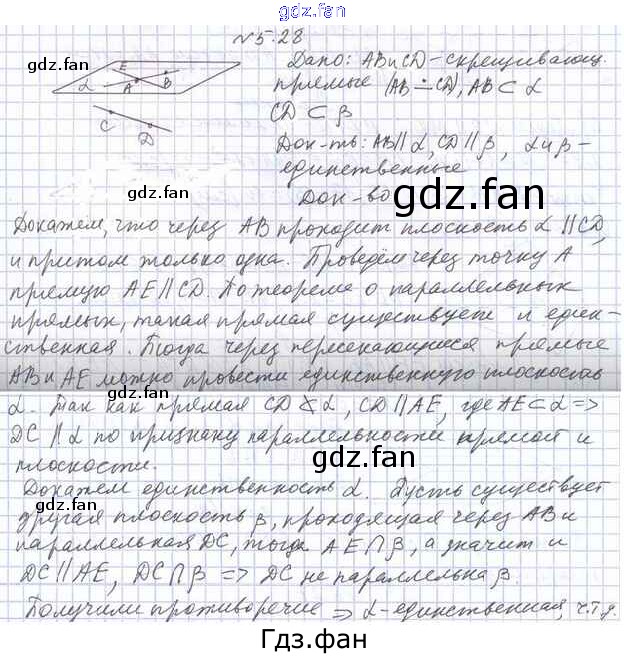 gdz.fan
N 5.28
gdz.fan
E
α A B
C D
Дано: AB и CD - скрещивающ.
прямые (AB ∸ CD), AB ⊂ α
gdz.fan
CD ⊂ β
Док-ть: AB ∥ α, CD ∥ β, α и β -
единственные
gdz.fan
Док-во
gdz.fan
Докажем, что через AB проходит плоскость α ∥ CD,
и притом только одна. Проведём через точку A
прямую AE ∥ CD. По теореме о параллельных
прямых, такая прямая существует и един-
ственная. Тогда через пересекающиеся прямые
AB и AE можно провести единственную плоскость
α. Так как прямая CD ⊄ α, CD ∥ AE, где AE ⊂ α =>
DC ∥ α по признаку параллельности прямой и
плоскости.
gdz.fan
gdz.fan
Докажем единственность α. Пусть существует
другая плоскость β, проходящая через AB и
параллельная DC, тогда AE ∩ β, а значит и
DC ∥ AE, DC ∩ β => DC не параллельна β.
gdz.fan
gdz.fan
Получили противоречие => α - единственная, ч.т.д.
Гдз.фан